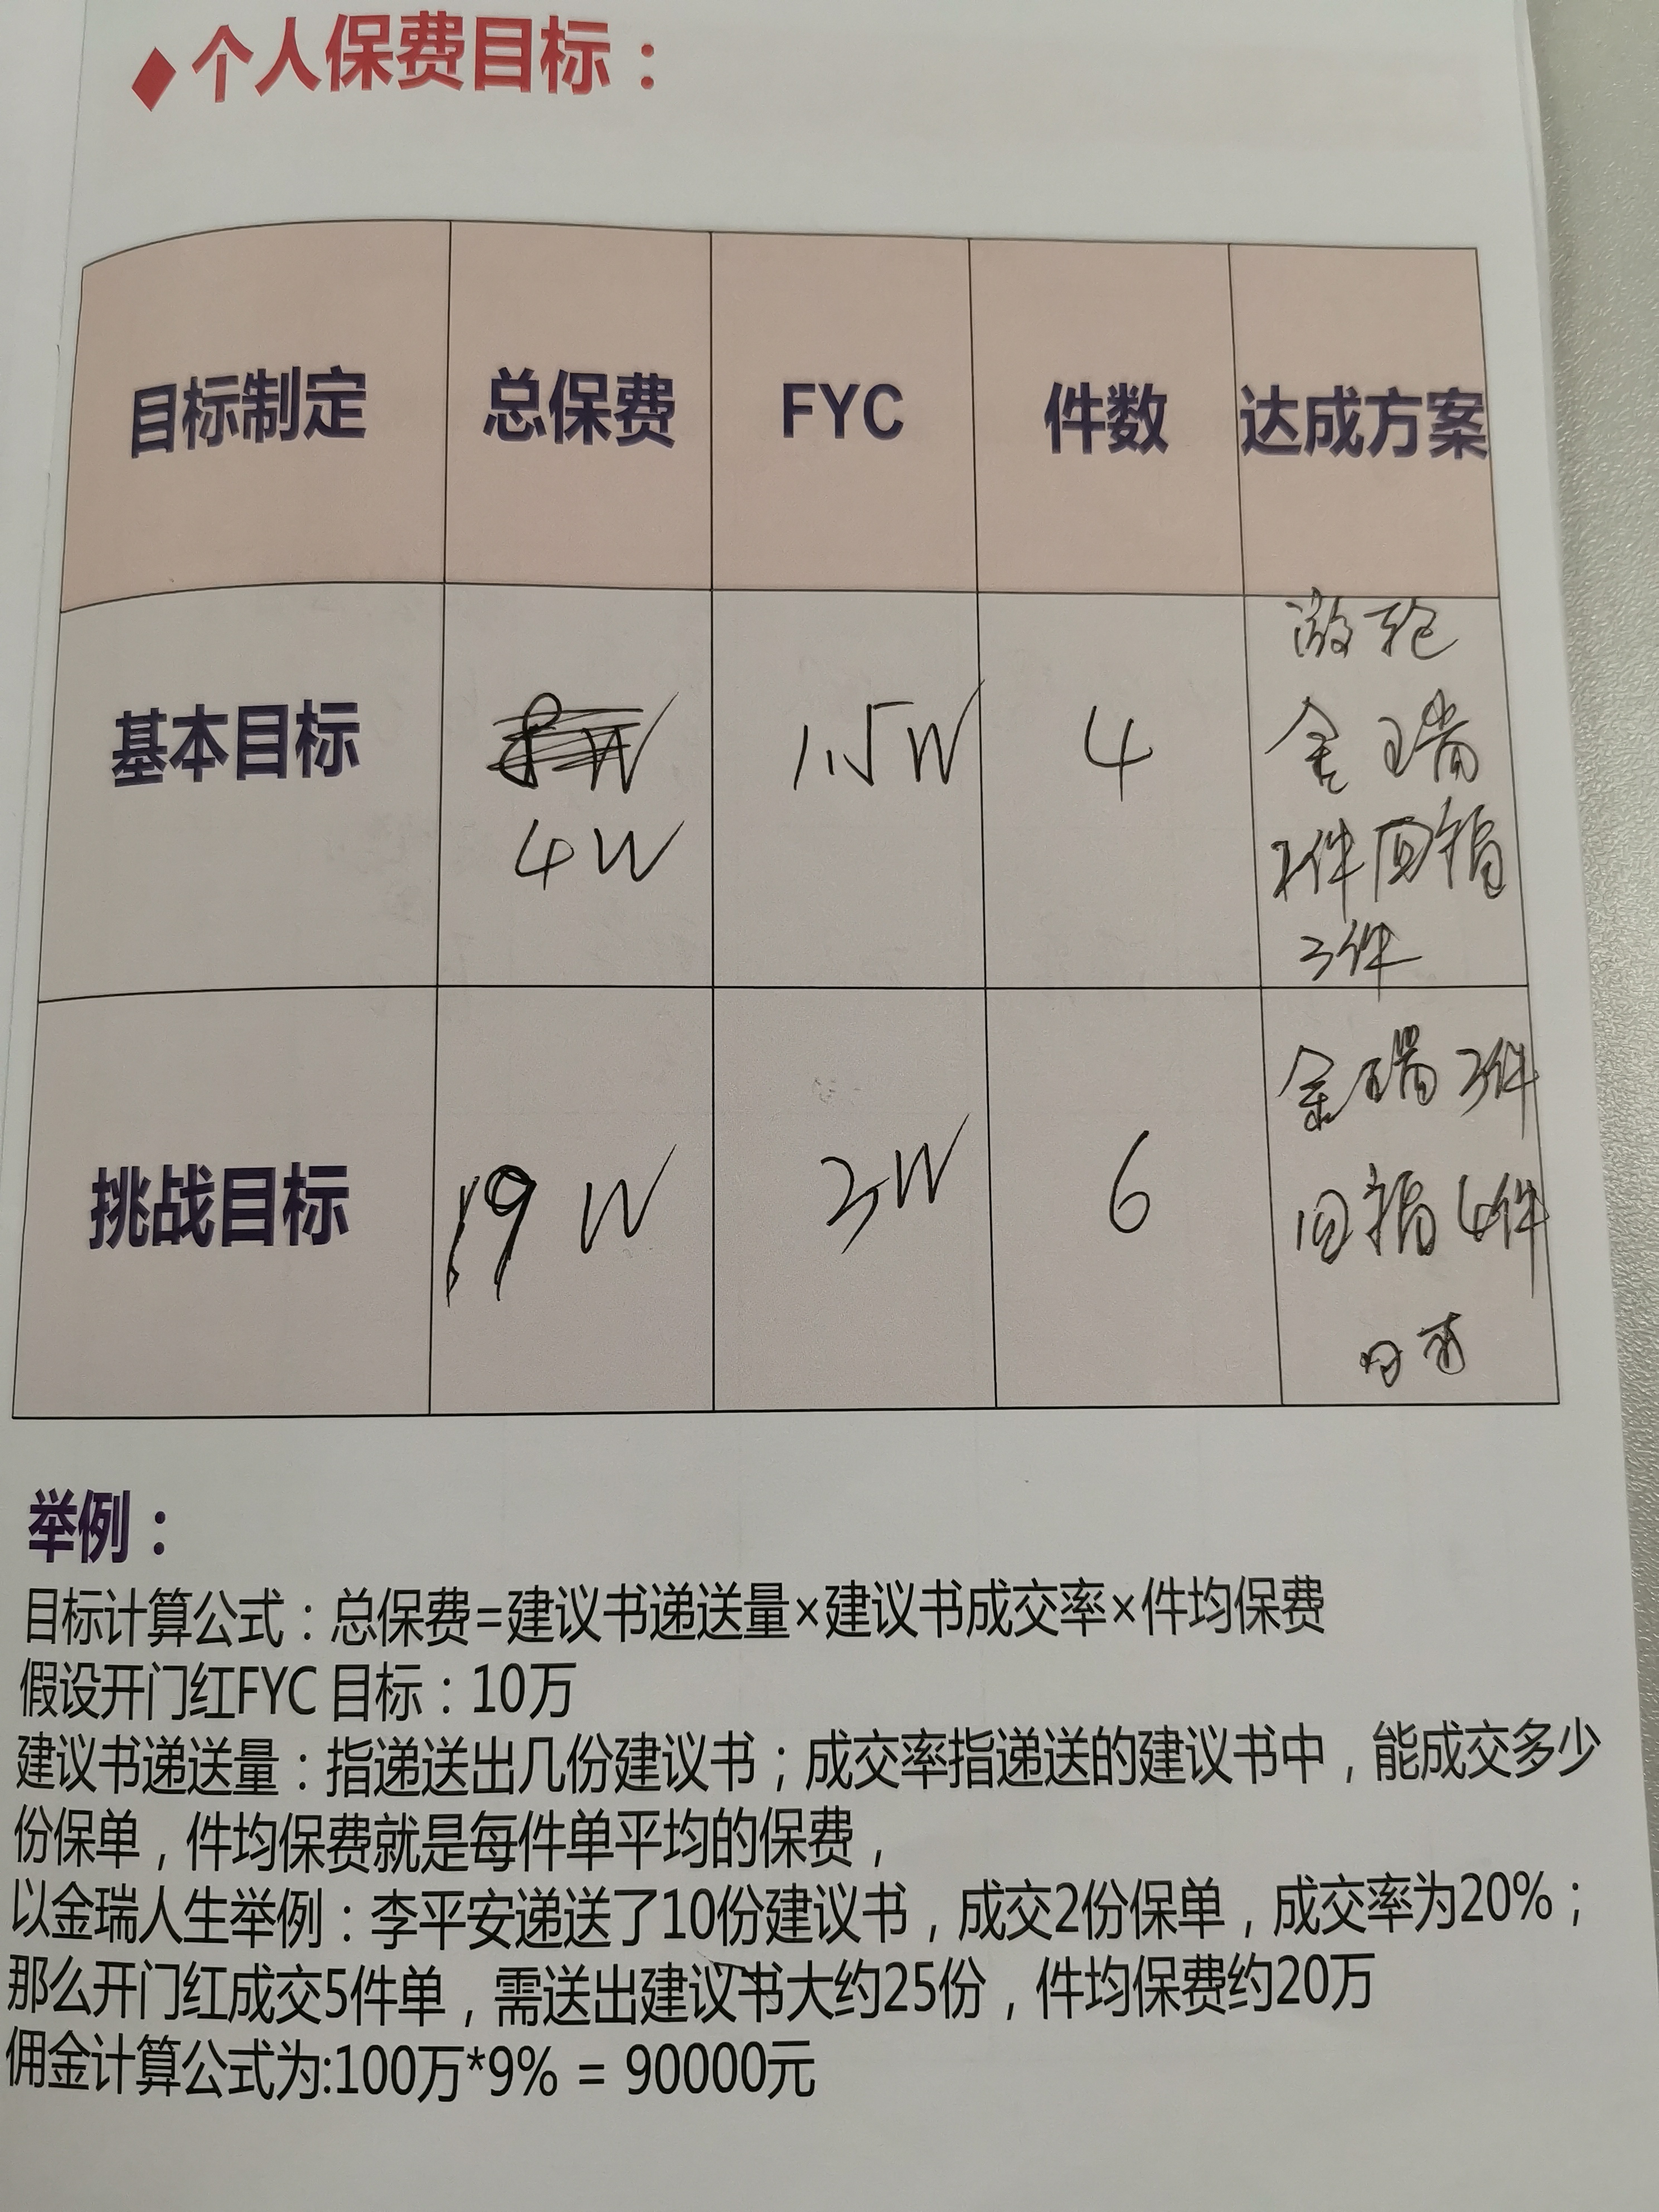 ◆个人保费目标：
目标制定 总保费 FYC 件数 达成方案
基本目标 4W 1.5W 4
金瑞
2件
3件
挑战目标 19W 2W 6
金瑞 2件
4件
举例：
目标计算公式：总保费=建议书递送量×建议书成交率×件均保费
假设开门红FYC 目标：10万
建议书递送量：指递送出几份建议书；成交率指递送的建议书中，能成交多少
份保单，件均保费就是每件单平均的保费，
以金瑞人生举例：李平安递送了10份建议书，成交2份保单，成交率为20%；
那么开门红成交5件单，需送出建议书大约25份，件均保费约20万
佣金计算公式为:100万*9% = 90000元